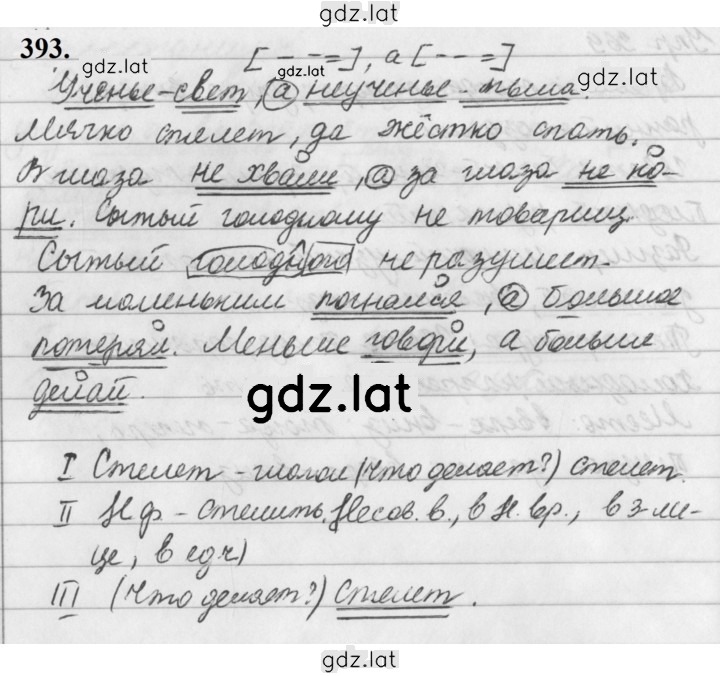 gdz.lat
393.
[ - - - = ], а [ - - - = ]
gdz.lat gdz.lat gdz.lat
Ученье-свет, а неученье - тьма.
Мягко стелет, да жёстко спать.
В глаза не хвали, а за глаза не ко-
ри. Сытый голодному не товарищ.
Сытый голодного не разумеет.
За маленьким погнался, а большое
потерял. Меньше говори, а больше
делай.
gdz.lat
I Стелет - глагол (Что делает?) стелет.
II Н.ф. - стелить. Несов. в., в н. вр., в 3-ли-
це, в ед.ч)
III (Что делает?) Стелет.
gdz.lat